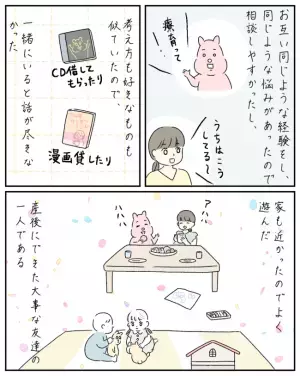 お互い同じような経験をし、
同じような悩みがあったので
相談しやすかったし、
療育って
…!
うちはこう
してる〜
考え方も好きなものも
似ていたので、
CD借して
もらったり
漫画貸したり
一緒にいると話が尽きな
かった
家も近かったのでよく
遊んだ
?
産後にできた大事な友達の
一人である